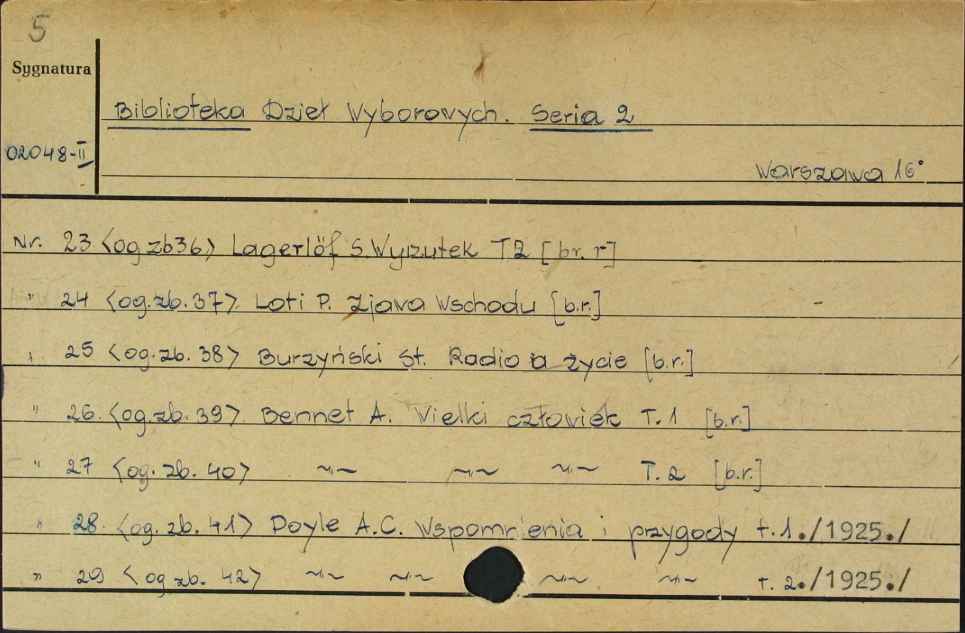 5
Sygnatura
Biblioteka Dzieł Wyborowych. Seria 2
02048-II
Warszawa 16°
Nr. 23 <og zb 36> Lagerlöf S. Wyrzutek T 2 [br. r]
" 24 <og. zb. 37> Loti P. Zjawa Wschodu [b.r.]
" 25 <og. zb. 38> Burzyński St. Radio a życie [b.r.]
" 26. <og. zb. 39> Bennet A. Wielki człowiek T. 1 [b.r.]
" 27 <og. zb. 40> ~"~ ~"~ ~"~ T. 2 [b.r.]
" 28. <og. zb. 41> Doyle A.C. Wspomnienia i przygody t. 1. /1925./
" 29 <og zb. 42> ~"~ ~"~ ~"~ ~"~ t. 2. /1925./